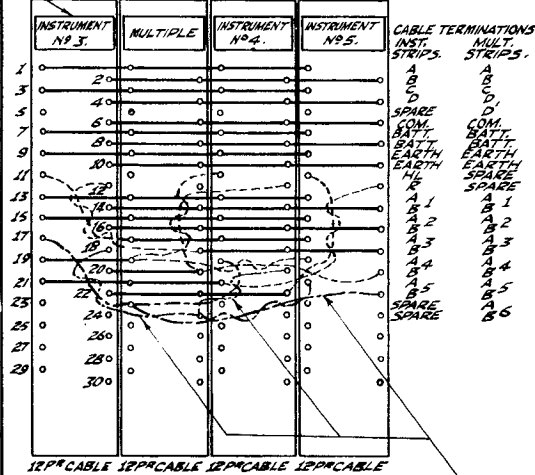 INSTRUMENT Nº 3.
MULTIPLE
INSTRUMENT Nº 4.
INSTRUMENT Nº 5.
CABLE TERMINATIONS
INST. STRIPS.
MULT. STRIPS.
1 A A
2 B B
3 C C
4 D D'
5 SPARE
6 COM. COM.
7 BATT. BATT.
8 BATT. BATT.
9 EARTH EARTH
10 EARTH EARTH
11 HL SPARE
12 R SPARE
13 A 1 A 1
14 B B
15 A 2 A 2
16 B B
17 A 3 A 3
18 B B
19 A 4 A 4
20 B B
21 A 5 A 5
22 B B
23 SPARE A 6
24 SPARE B
25
26
27
28
29
30
12 PR CABLE 12 PR CABLE 12 PR CABLE 12 PR CABLE